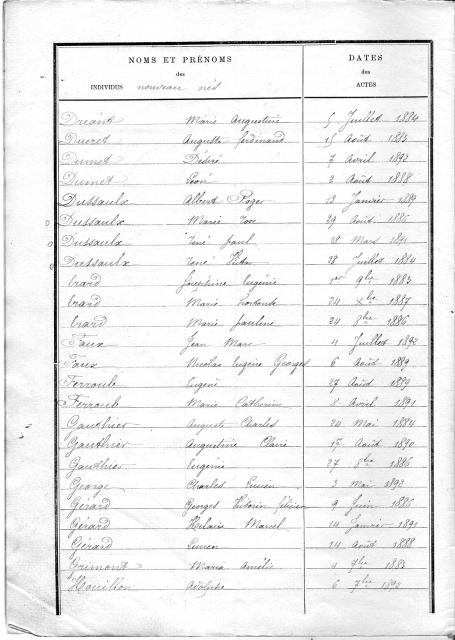 NOMS ET PRÉNOMS DATES
des des
INDIVIDUS nouveau nés ACTES
Dréant Marie Augustine 5 Juillet 1884
Ducret Auguste ferdinand 15 Août 1883
Dumet Désiré 7 Avril 1892
Dumet Léon 2 Août 1888
Dussaulx Albert Roger 13 Janvier 1889
Dussaulx Marie 29 Août 1886
Dussaulx René paul 28 Mars 1891
Dussaulx René 28 Juillet 1884
Erard Joséphine Eugénie 1er 9bre 1883
Erard Marie hortense 24 Xbre 1887
Erard Marie pauline 24 8bre 1886
Faux Jean Marc 4 Juillet 1892
Faux Nicolas Eugène Georges 6 Août 1889
Ferroub Eugené 27 Août 1889
Ferroub Marie Catherine 8 Avril 1891
Gauthier Auguste Charles 24 Mai 1884
Gauthier Augustine Claire 1er Août 1890
Gauthier Eugenie 27 8bre 1886
George Charles Lucien 2 Mai 1892
Gérard Georges Victorin félicien 9 Juin 1886
Gérard Hilaire Marcel 14 Janvier 1891
Gérard Lucien 14 Août 1888
Grimont Maria Amélie 4 9bre 1883
Houillon Adolphe 6 7bre 1892